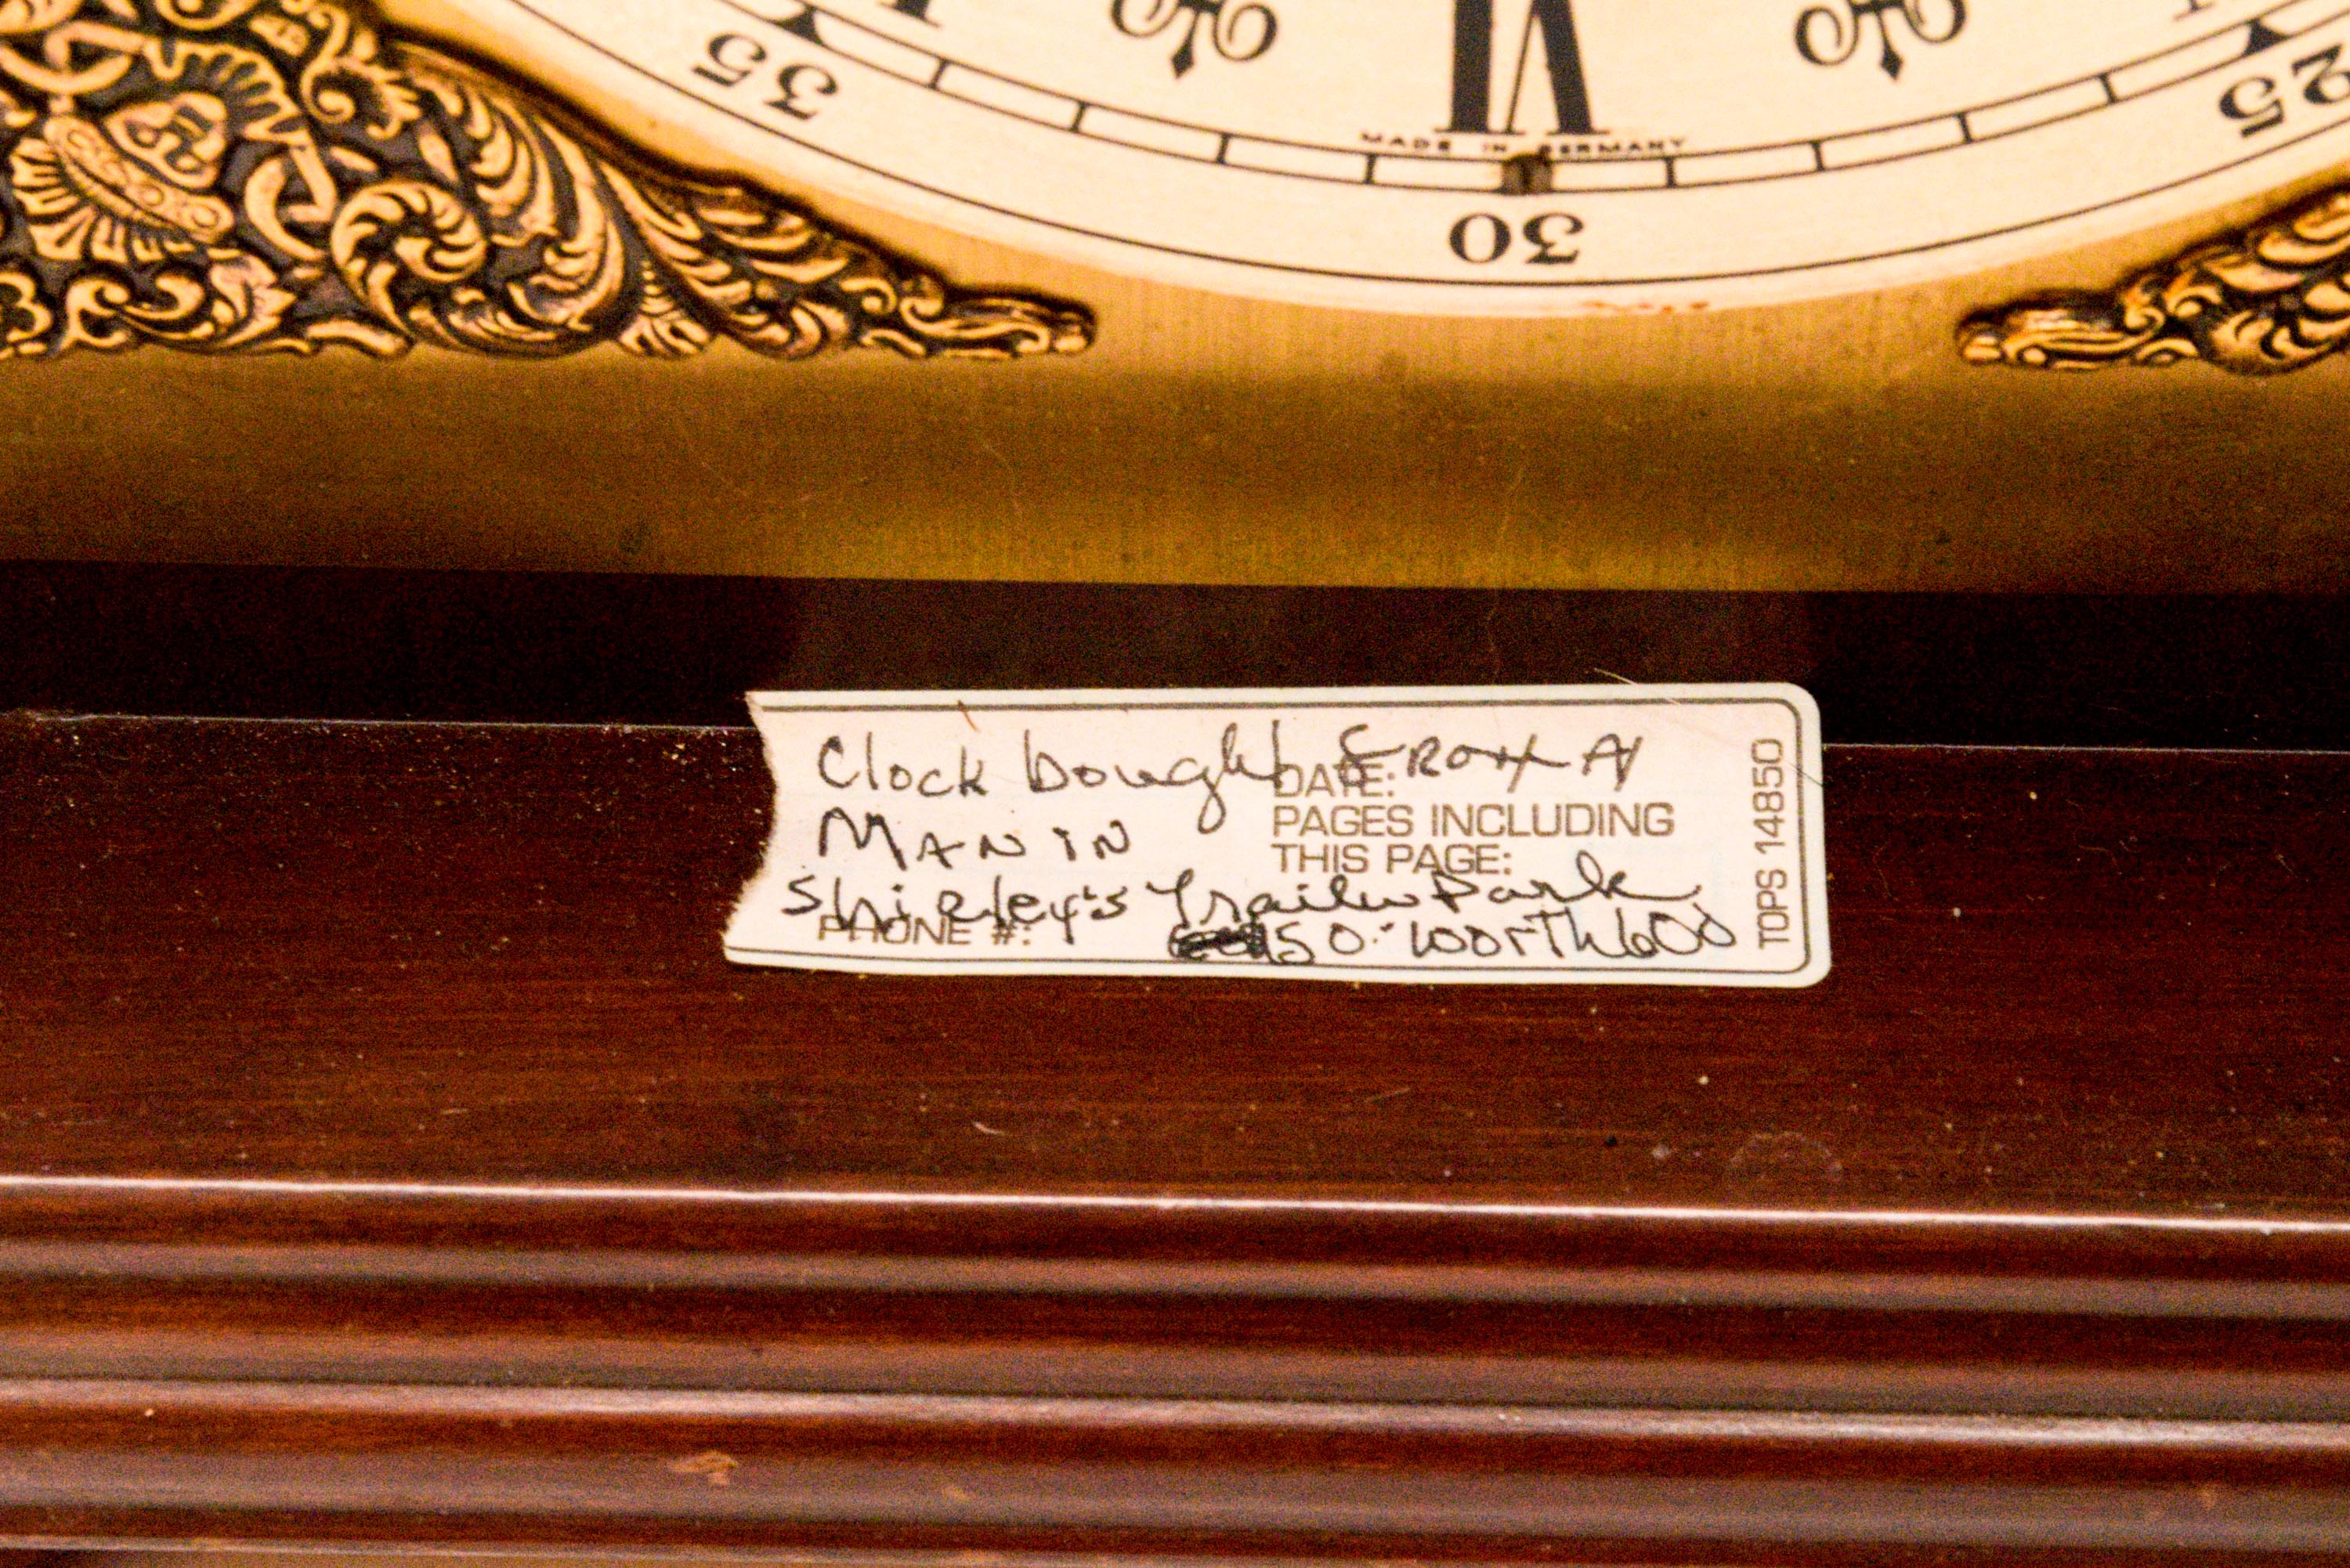 35
VI
25
MADE IN GERMANY
30
Clock bought FROM A
DATE:
MAN IN
PAGES INCLUDING
THIS PAGE:
Shirley's Trailer Park
PHONE #:
50. worth 600
TOPS 14850